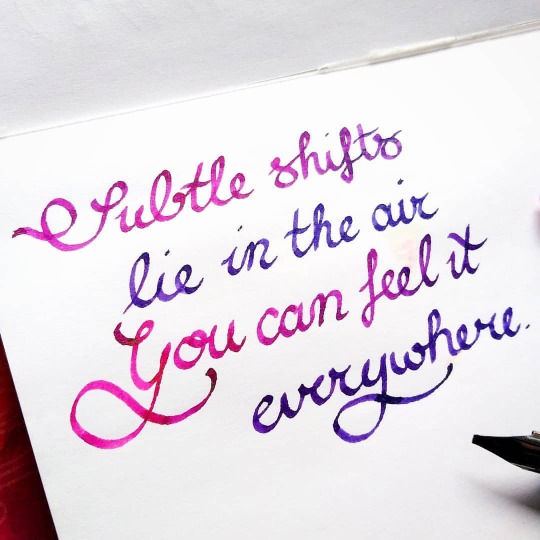 Subtle shifts
lie in the air
You can feel it
everywhere.